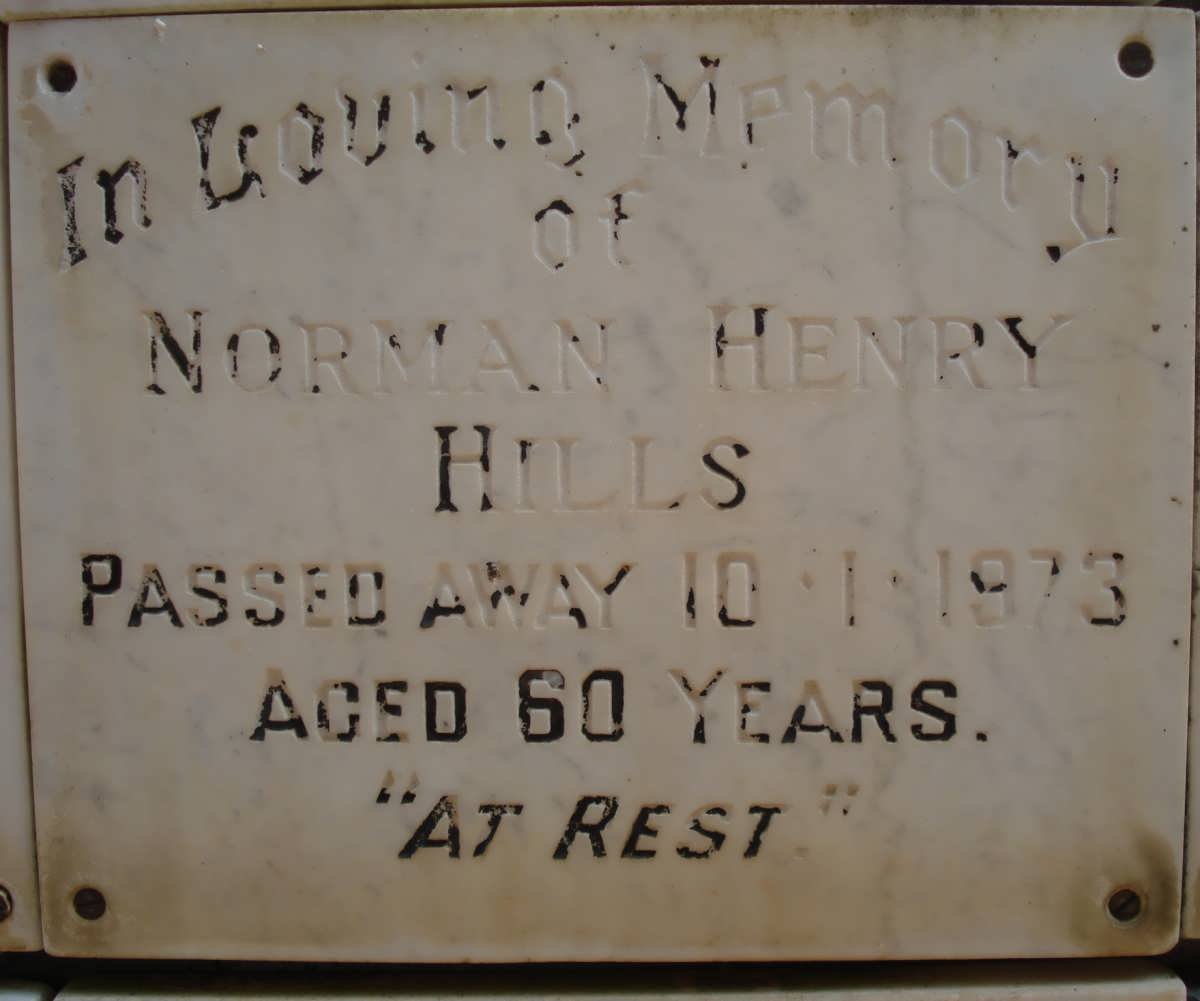 In Loving Memory
of
NORMAN HENRY
HILLS
PASSED AWAY 10·1·1973
AGED 60 YEARS.
"AT REST"